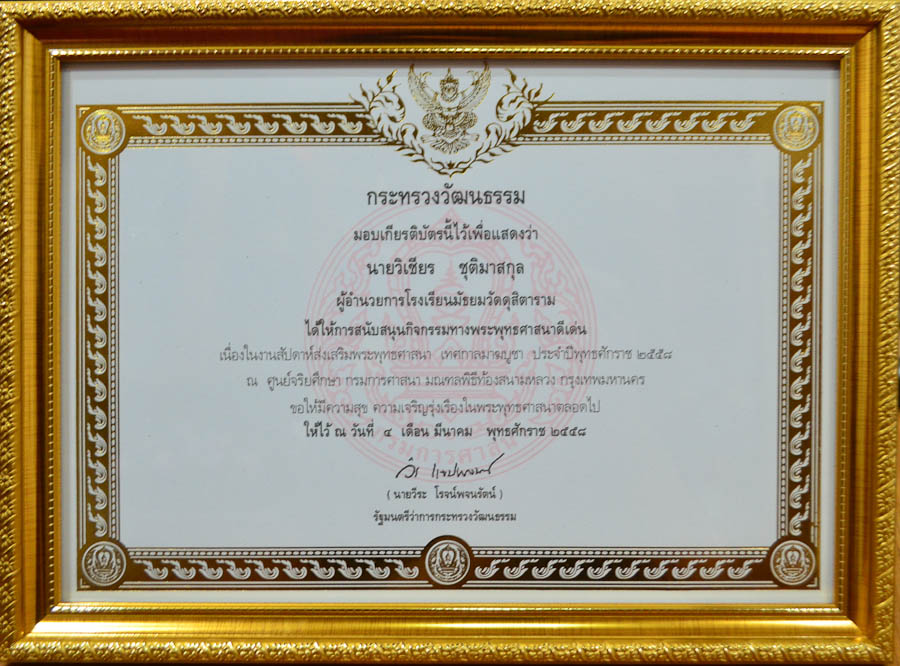 กระทรวงวัฒนธรรม
มอบเกียรติบัตรนี้ไว้เพื่อแสดงว่า
นายวิเชียร ชุติมาสกุล
ผู้อำนวยการโรงเรียนมัธยมวัดดุสิตาราม
ได้ให้การสนับสนุนกิจกรรมทางพระพุทธศาสนาดีเด่น
เนื่องในงานสัปดาห์ส่งเสริมพระพุทธศาสนา เทศกาลมาฆบูชา ประจำปีพุทธศักราช ๒๕๕๘
ณ ศูนย์จริยศึกษา กรมการศาสนา มณฑลพิธีท้องสนามหลวง กรุงเทพมหานคร
ขอให้มีความสุข ความเจริญรุ่งเรืองในพระพุทธศาสนาตลอดไป
ให้ไว้ ณ วันที่ ๔ เดือน มีนาคม พุทธศักราช ๒๕๕๘
กรมการศาสนา
(นายวีระ โรจน์พจนรัตน์)
รัฐมนตรีว่าการกระทรวงวัฒนธรรม